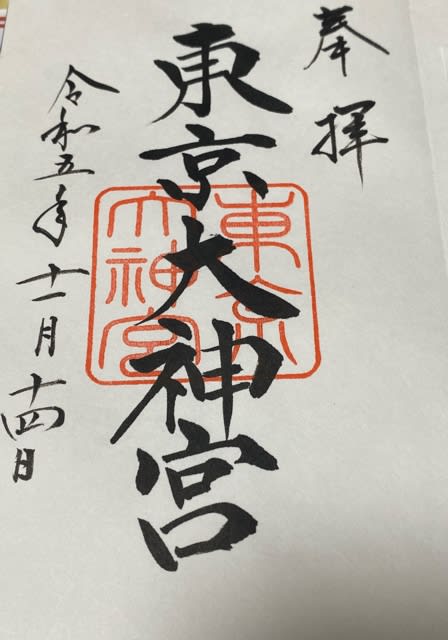 奉拝
東京大神宮
東京大神宮
令和五年十一月十四日